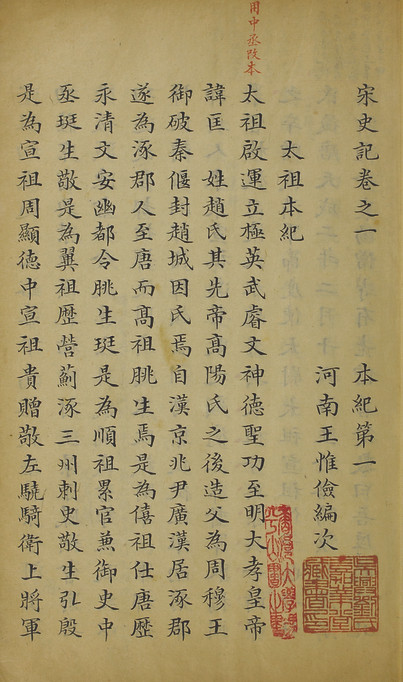 用中丞改本
宋史記卷之一　本紀第一
河南王惟儉編次
太祖本紀
太祖啟運立極英武睿文神德聖功至明大孝皇帝
諱匡　姓趙氏其先帝高陽氏之後造父為周穆王
御破秦偃封趙城因氏焉自漢京兆尹廣漢居涿郡
遂為涿郡人至唐而高祖朓生焉是為僖祖仕唐歷
永清文安幽都令朓生珽是為順祖累官兼御史中
丞珽生敬是為翼祖歷營薊涿三州刺史敬生弘殷
是為宣祖周顯德中宣祖貴贈敬左驍騎衛上將軍
吳興劉氏
嘉業堂
藏書印